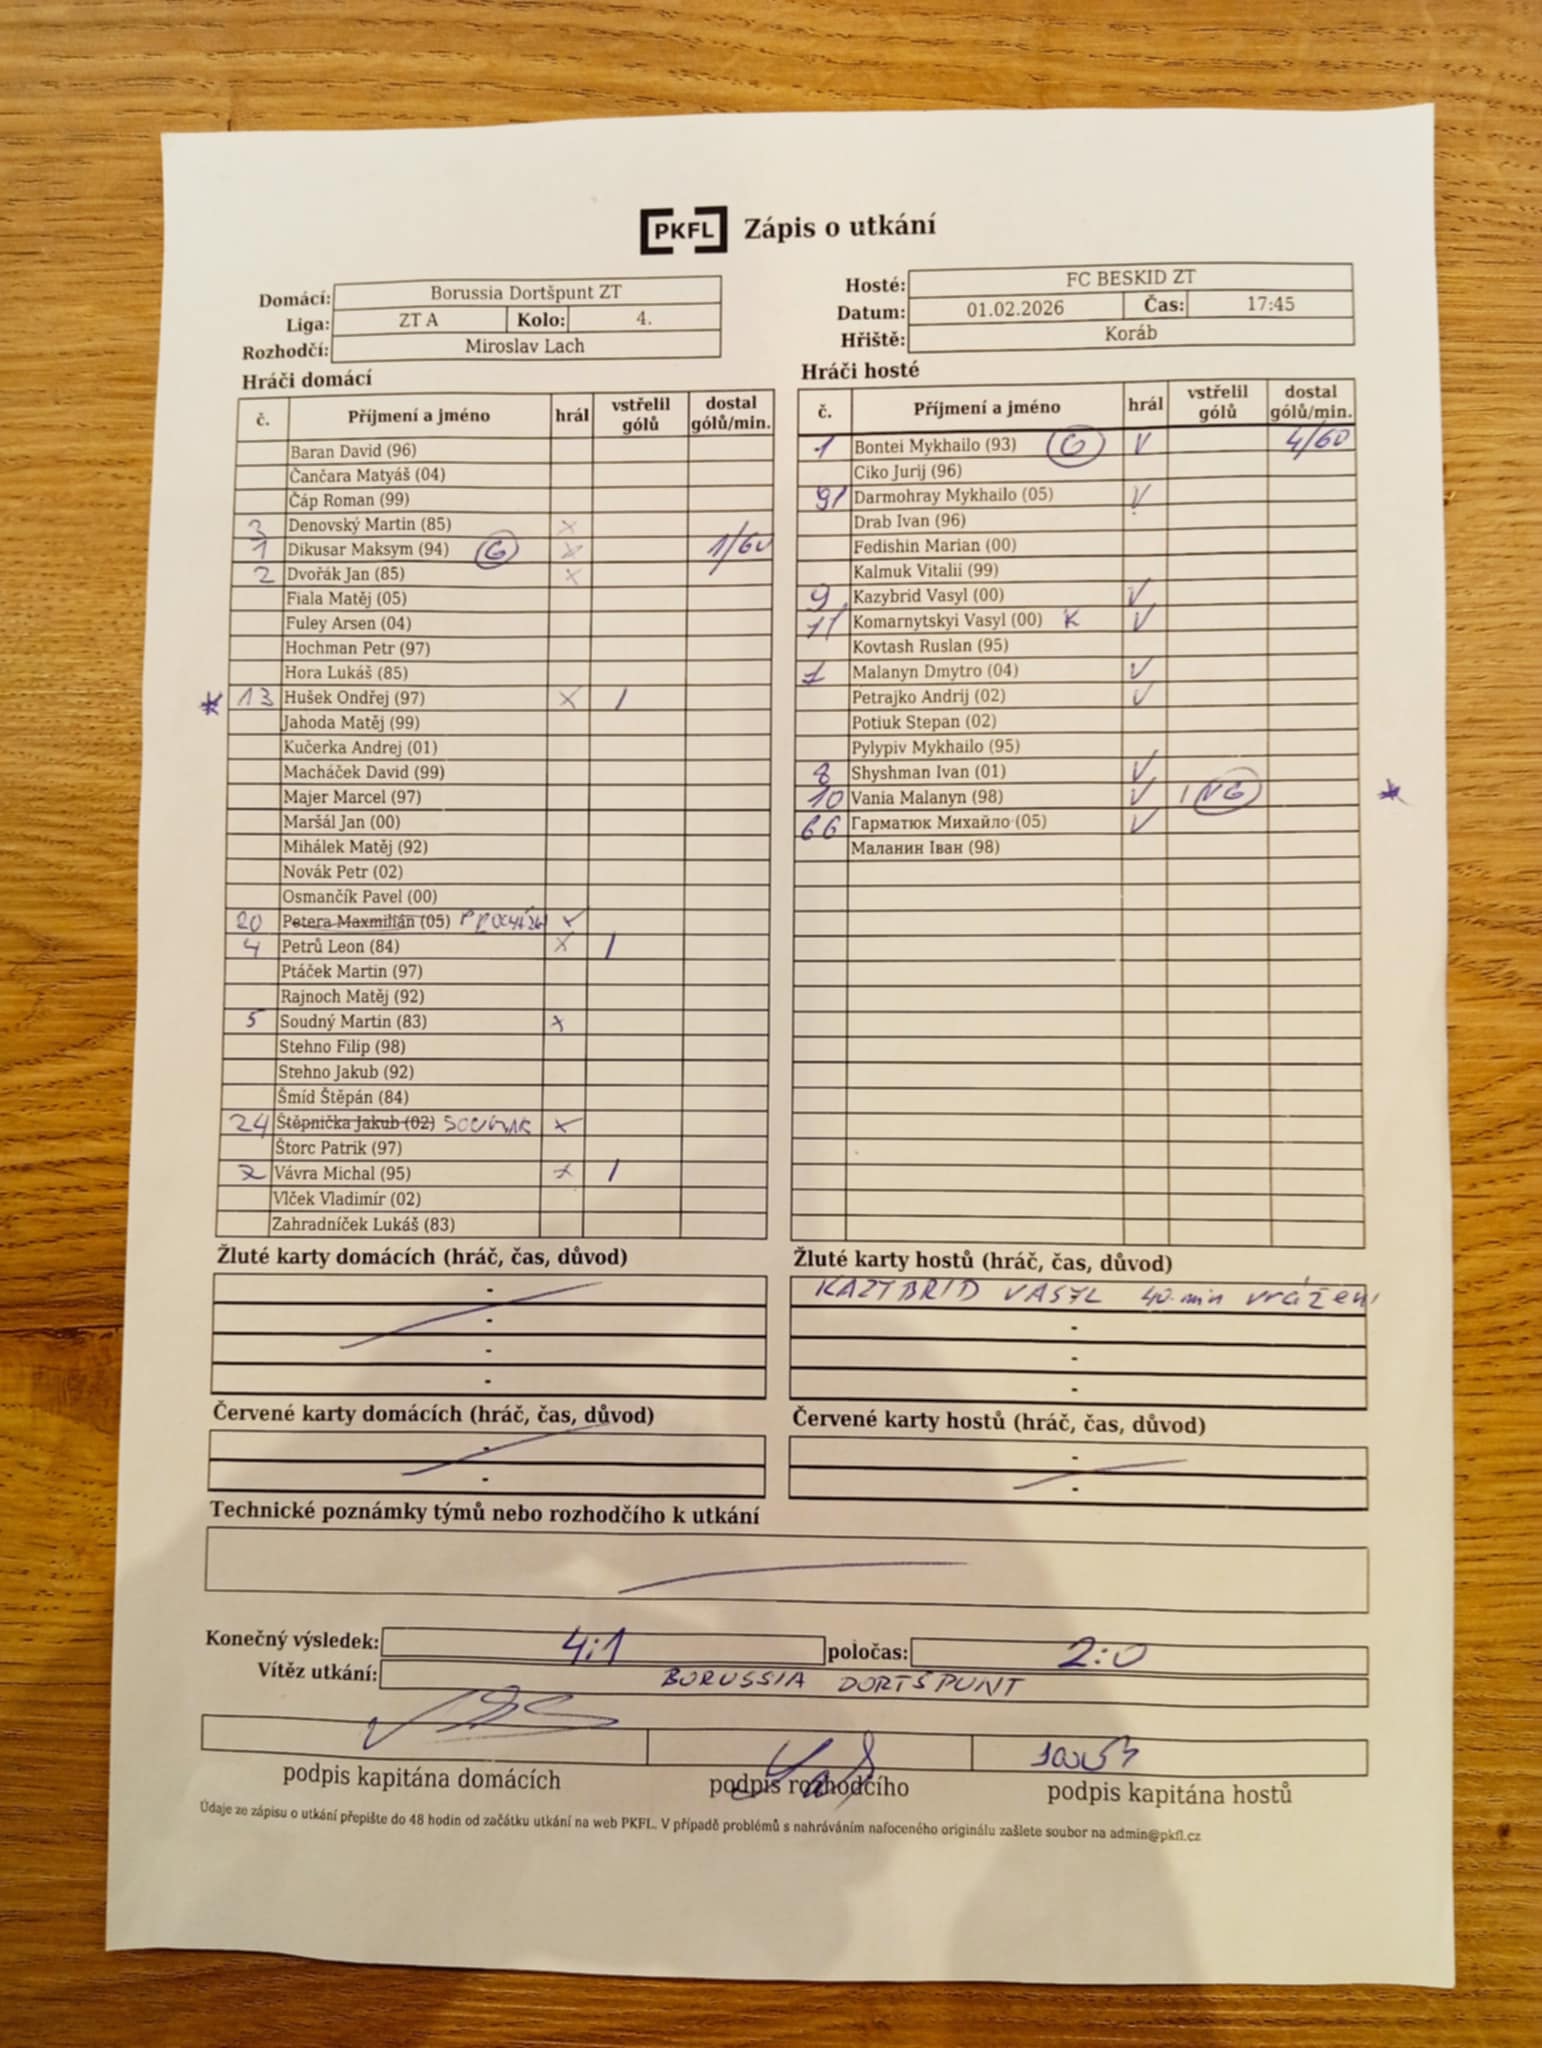 PKFL Zápis o utkání
Domácí: Borussia Dortšpunt ZT
Liga: ZT A Kolo: 4.
Rozhodčí: Miroslav Lach
Hosté: FC BESKID ZT
Datum: 01.02.2026 Čas: 17:45
Hřiště: Koráb
Hráči domácí
č. Příjmení a jméno hrál vstřelil gólů dostal gólů/min.
Baran David (96)
Čančara Matyáš (04)
Čáp Roman (99)
3 Denovský Martin (85) x
1 Dikusar Maksym (94) G x 1/60
2 Dvořák Jan (85) x
Fiala Matěj (05)
Fuley Arsen (04)
Hochman Petr (97)
Hora Lukáš (85)
* 13 Hušek Ondřej (97) x 1
Jahoda Matěj (99)
Kučerka Andrej (01)
Macháček David (99)
Majer Marcel (97)
Maršál Jan (00)
Mihálek Matěj (92)
Novák Petr (02)
Osmančík Pavel (00)
20 Petera Maxmilián (05) x
4 Petrů Leon (84) x 1
Ptáček Martin (97)
Rajnoch Matěj (92)
5 Soudný Martin (83) x
Stehno Filip (98)
Stehno Jakub (92)
Šmíd Štěpán (84)
24 Štěpnička Jakub (02) x
Štorc Patrik (97)
Vávra Michal (95) x 1
Vlček Vladimír (02)
Zahradníček Lukáš (83)
Hráči hosté
č. Příjmení a jméno hrál vstřelil gólů dostal gólů/min.
1 Bontei Mykhailo (93) G V 4/60
Ciko Jurij (96)
91 Darmohray Mykhailo (05) V
Drab Ivan (96)
Fedishin Marian (00)
Kalmuk Vitalii (99)
9 Kazybrid Vasyl (00) V
11 Komarnytskyi Vasyl (00) K V
Kovtash Ruslan (95)
Malanyn Dmytro (04) V
Petrajko Andrij (02) V
Potiuk Stepan (02)
Pylypiv Mykhailo (95)
8 Shyshman Ivan (01) V
10 Vania Malanyn (98) V 1 VG *
66 Гарматюк Михайло (05) V
Маланин Іван (98)
Žluté karty domácích (hráč, čas, důvod)
-
-
-
-
Žluté karty hostů (hráč, čas, důvod)
KAZYBRID VASYL 40. min vrážení
-
-
-
Červené karty domácích (hráč, čas, důvod)
-
-
Červené karty hostů (hráč, čas, důvod)
-
-
Technické poznámky týmů nebo rozhodčího k utkání
Konečný výsledek: 4:1 poločas: 2:0
Vítěz utkání: BORUSSIA DORTŠPUNT
podpis kapitána domácích podpis rozhodčího podpis kapitána hostů
Údaje ze zápisu o utkání přepište do 48 hodin od začátku utkání na web PKFL. V případě problémů s nahráváním nafoceného originálu zašlete soubor na admin@pkfl.cz